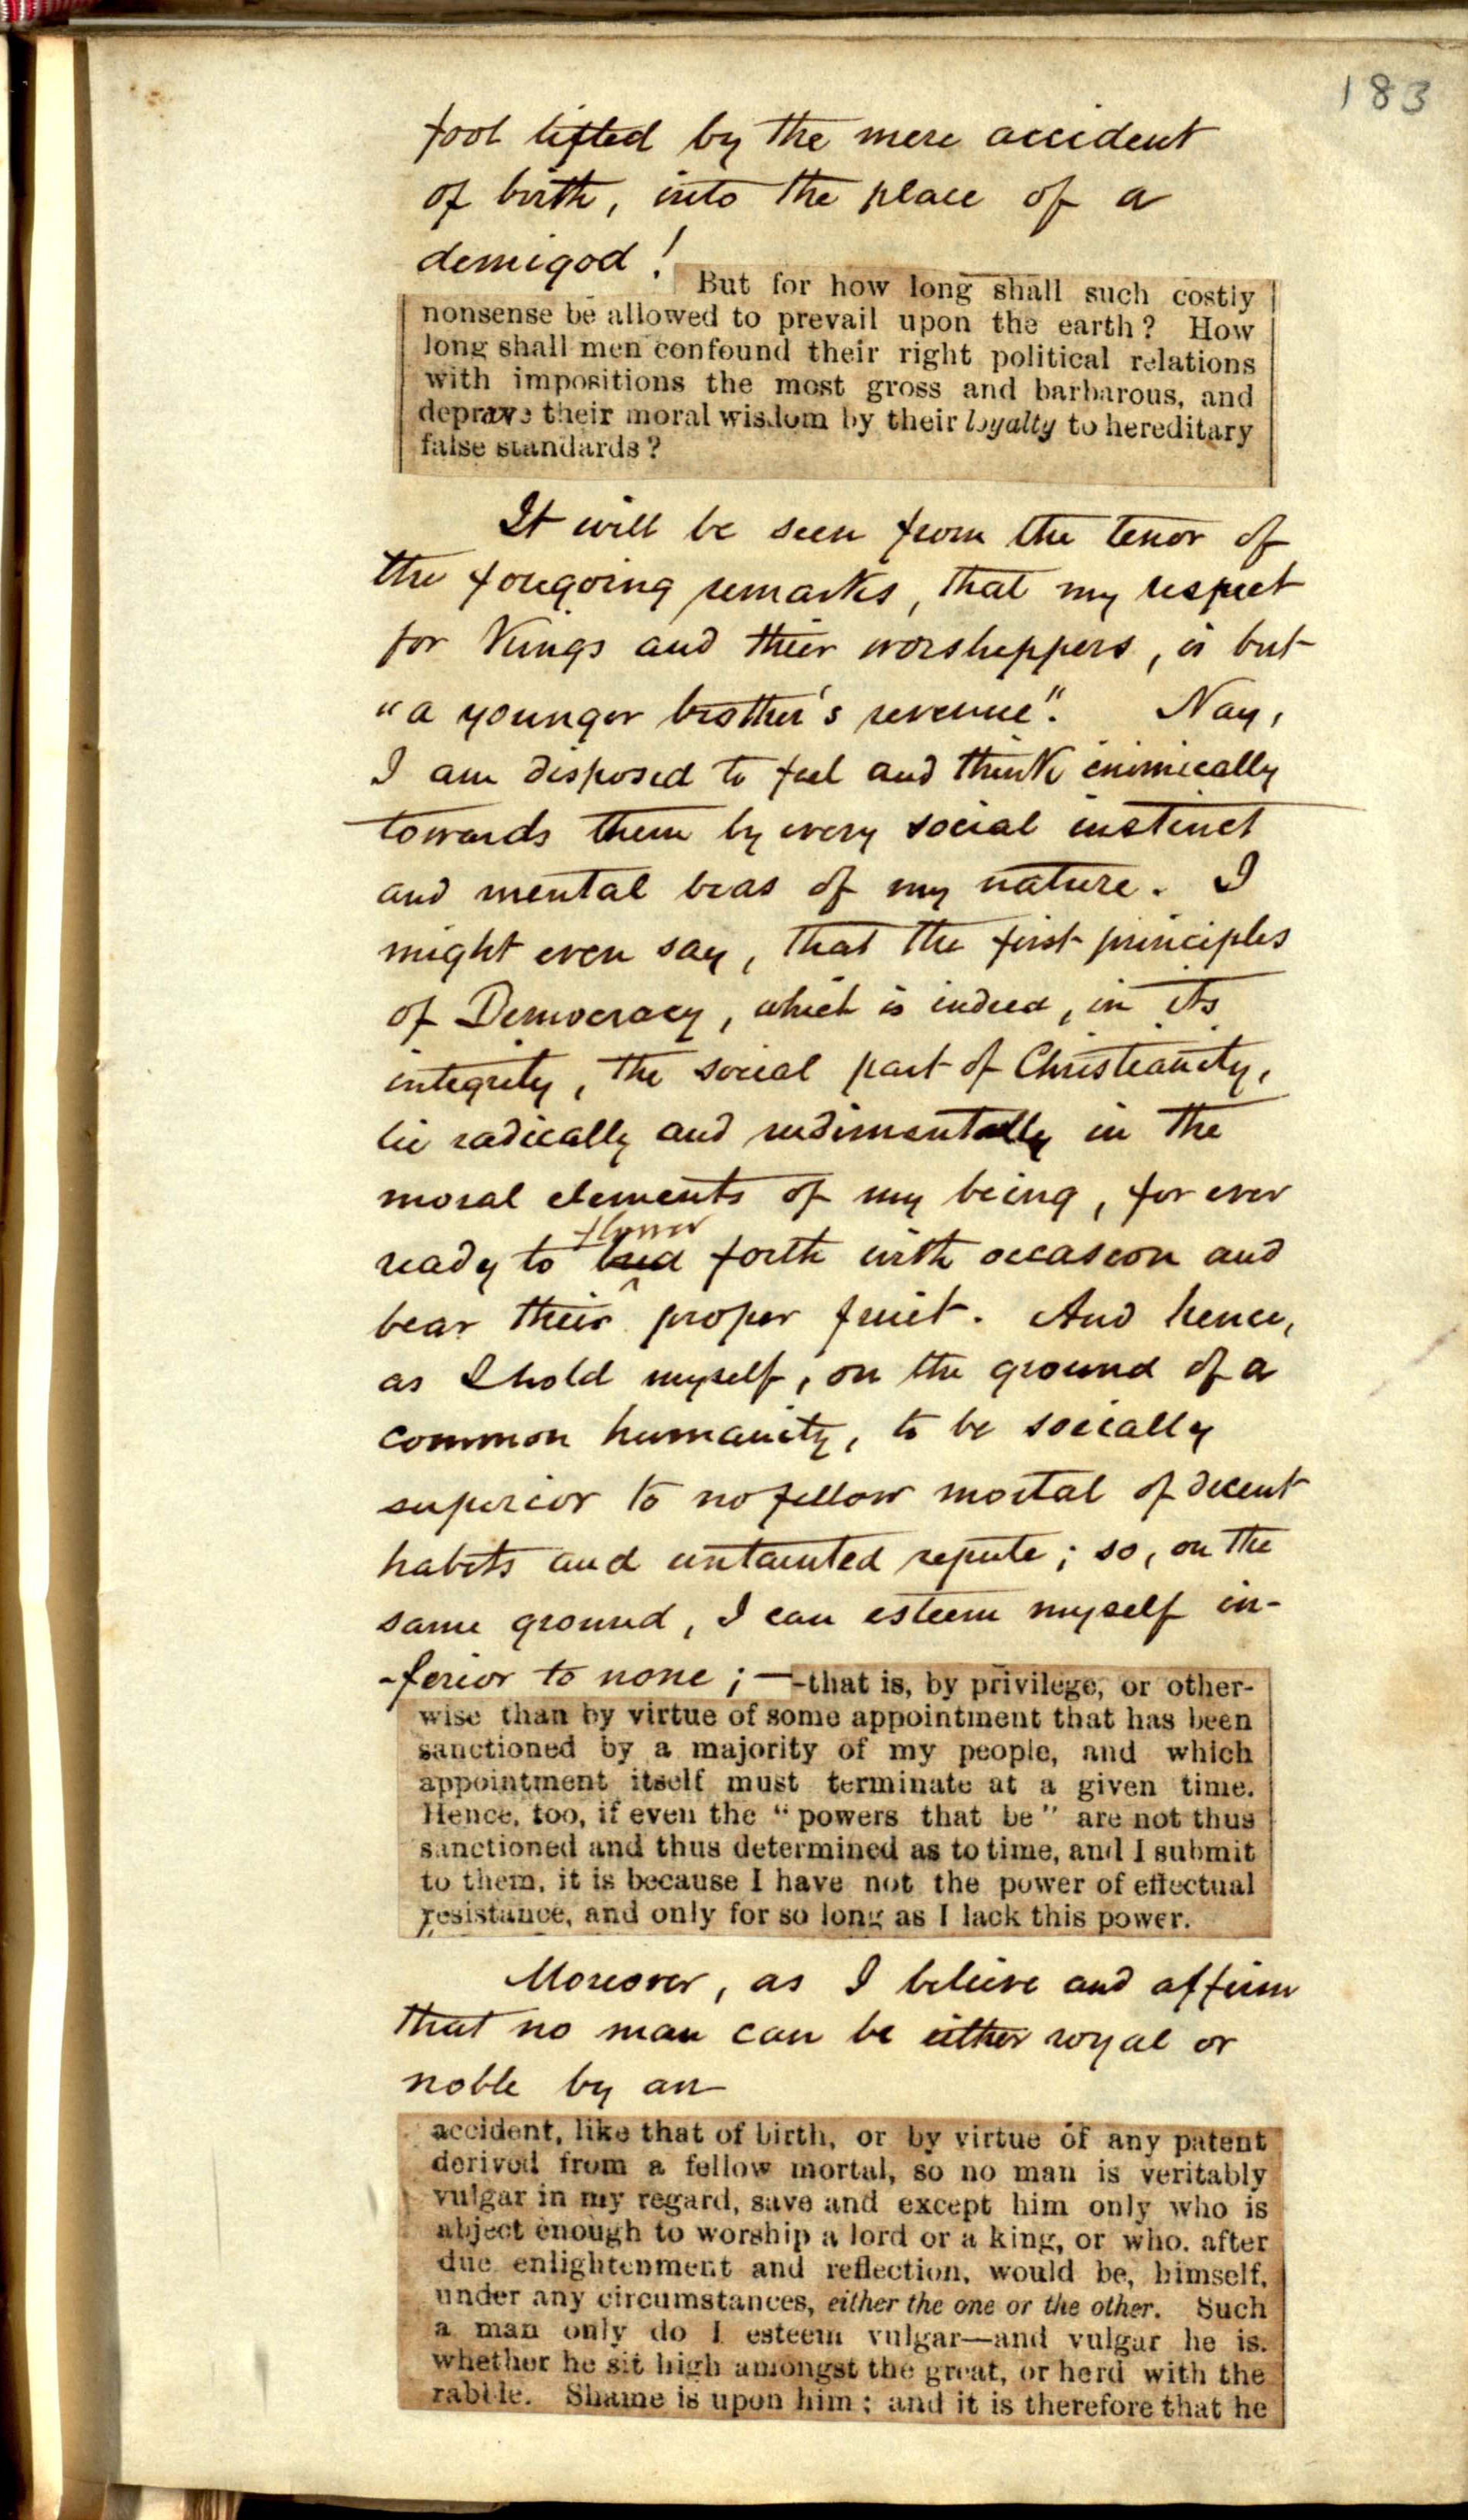 183
fool lifted by the mere accident
of birth, into the place of a
demigod!
But for how long shall such costly
nonsense be allowed to prevail upon the earth? How
long shall men confound their right political relations
with impositions the most gross and barbarous, and
deprave their moral wisdom by their loyalty to hereditary
false standards?
It will be seen from the tenor of
the foregoing remarks, that my respect
for Kings and their worshippers, is but
"a younger brother's revenue". Nay,
I am disposed to feel and think inimically
towards them by every social instinct
and mental bias of my nature. I
might even say, that the first principles
of Democracy, which is indeed, in its
integrity, the social part of Christianity,
lie radically and rudimentally in the
moral elements of my being, for ever
flower
ready to bud forth with occasion and
bear their proper fruit. And hence,
as I hold myself, on the ground of a
common humanity, to be socially
superior to no fellow mortal of decent
habits and untainted repute; so, on the
same ground, I can esteem myself in-
-ferior to none; —
-that is, by privilege, or other-
wise than by virtue of some appointment that has been
sanctioned by a majority of my people, and which
appointment itself must terminate at a given time.
Hence, too, if even the "powers that be" are not thus
sanctioned and thus determined as to time, and I submit
to them, it is because I have not the power of effectual
resistance, and only for so long as I lack this power.
Moreover, as I believe and affirm
that no man can be either royal or
noble by an
accident, like that of birth, or by virtue of any patent
derived from a fellow mortal, so no man is veritably
vulgar in my regard, save and except him only who is
abject enough to worship a lord or a king, or who, after
due enlightenment and reflection, would be, himself,
under any circumstances, either the one or the other. Such
a man only do I esteem vulgar—and vulgar he is,
whether he sit high amongst the great, or herd with the
rabble. Shame is upon him; and it is therefore that he